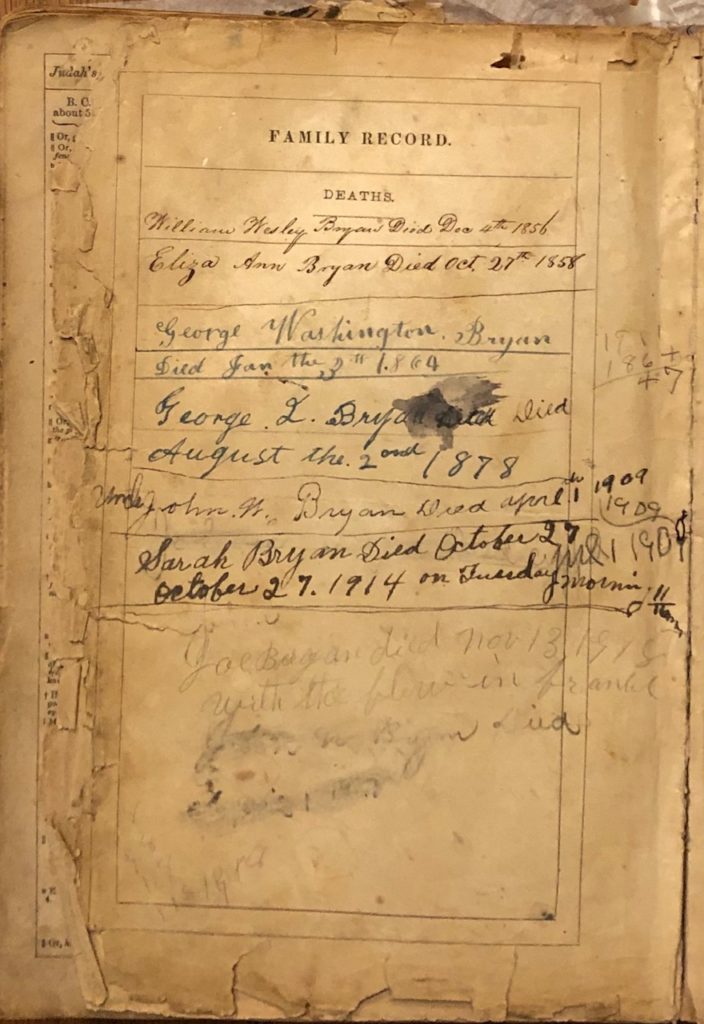 Judah's
B. C.
about 5
Or,
Or,
FAMILY RECORD.
DEATHS.
William Wesley Bryan Died Dec 4th 1856
Eliza Ann Bryan Died Oct, 27th 1858
George Washington. Bryan
Died Jan the 3th 1864
186
+
+7
George L. Bryan Died
August the 2ond 1878
Uncle John. W. Bryan Died april 1th 1909
1909
Sarah Bryan Died October 27
1 1909
October 27. 1914 on Tuesday mornin, 11
Joe Bryan died nov 13, 191
with the in
W Bryan Died
1
Or,